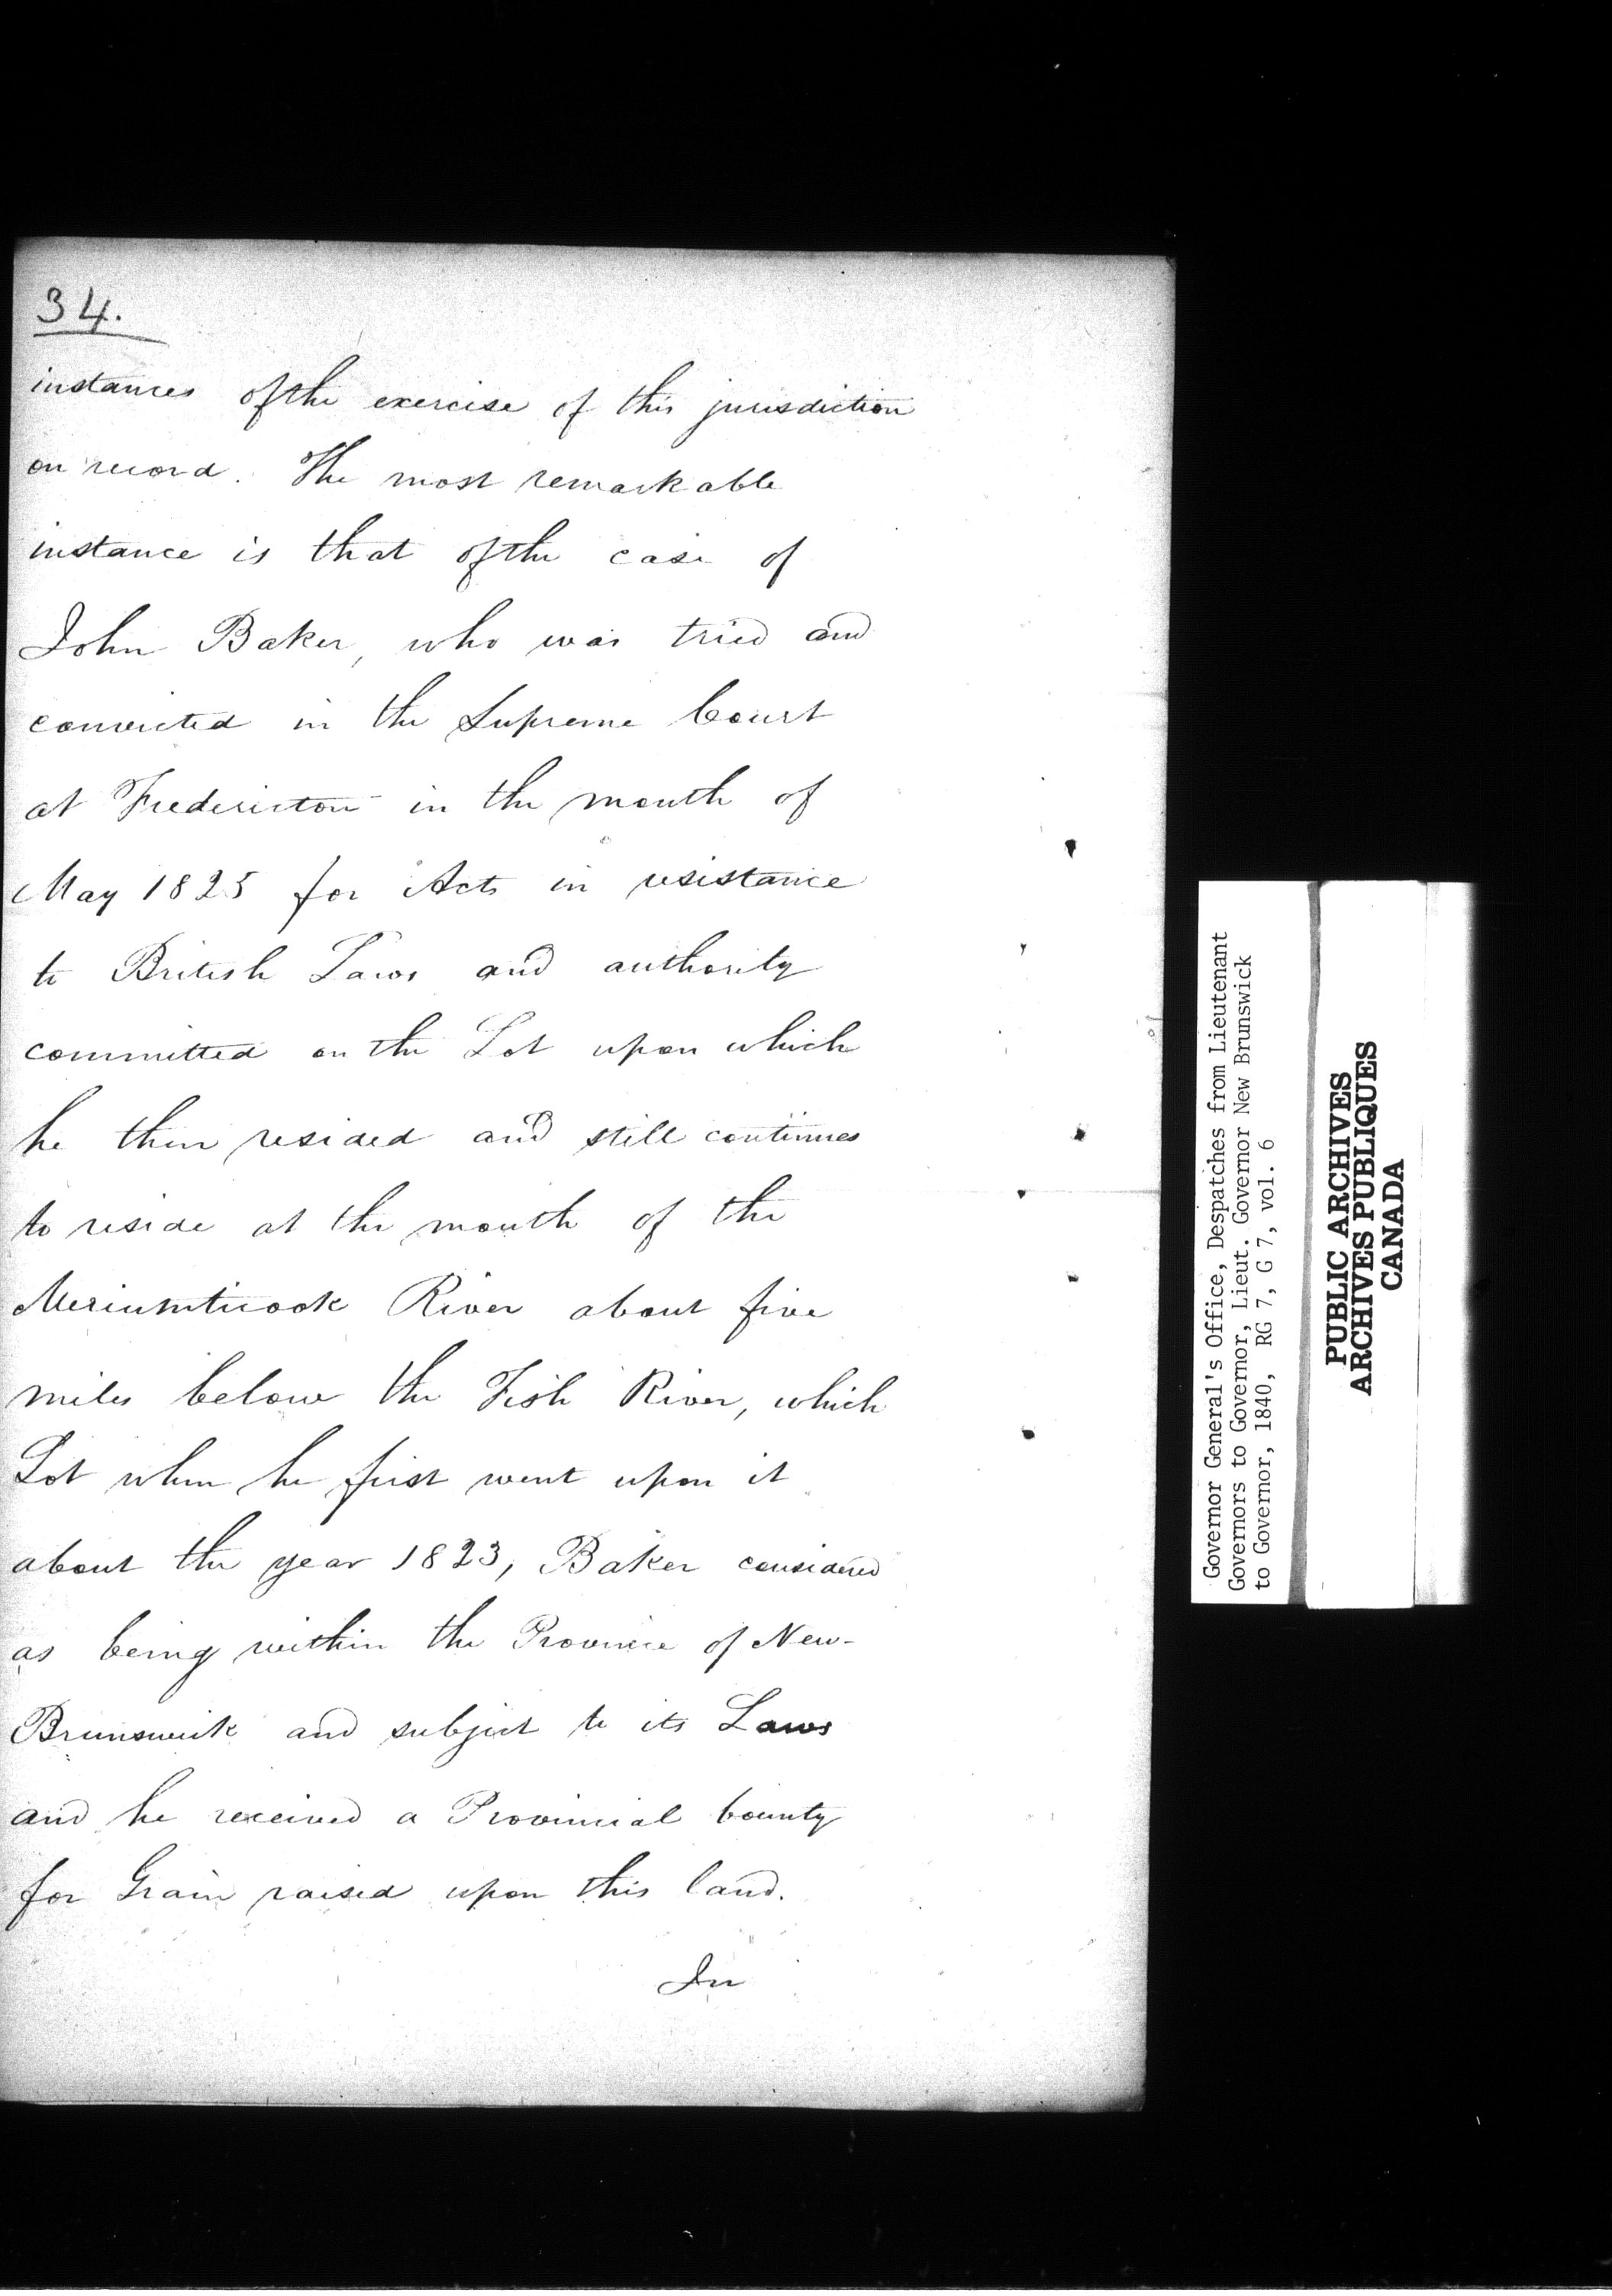 34.
instances of the exercise of this jurisdiction
on record. The most remarkable
instance is that of the case of
John Baker, who was tried and
convicted in the Supreme Court
at Fredericton in the month of
May 1825 for Acts in resistance
to British Laws and authority
committed on the Lot upon which
he then resided and still continues
to reside at the mouth of the
Meriumticook River about five
miles below the Fish River, which
Lot when he first went upon it
about the year 1823, Baker considered
as being within the Province of New-
Brunswick and subject to its Laws
and he received a Provincial bounty
for Grain raised upon this land.
In
Governor General's Office, Despatches from Lieutenant
Governors to Governor, Lieut. Governor New Brunswick
to Governor, 1840, RG 7, G 7, vol. 6
PUBLIC ARCHIVES
ARCHIVES PUBLIQUES
CANADA